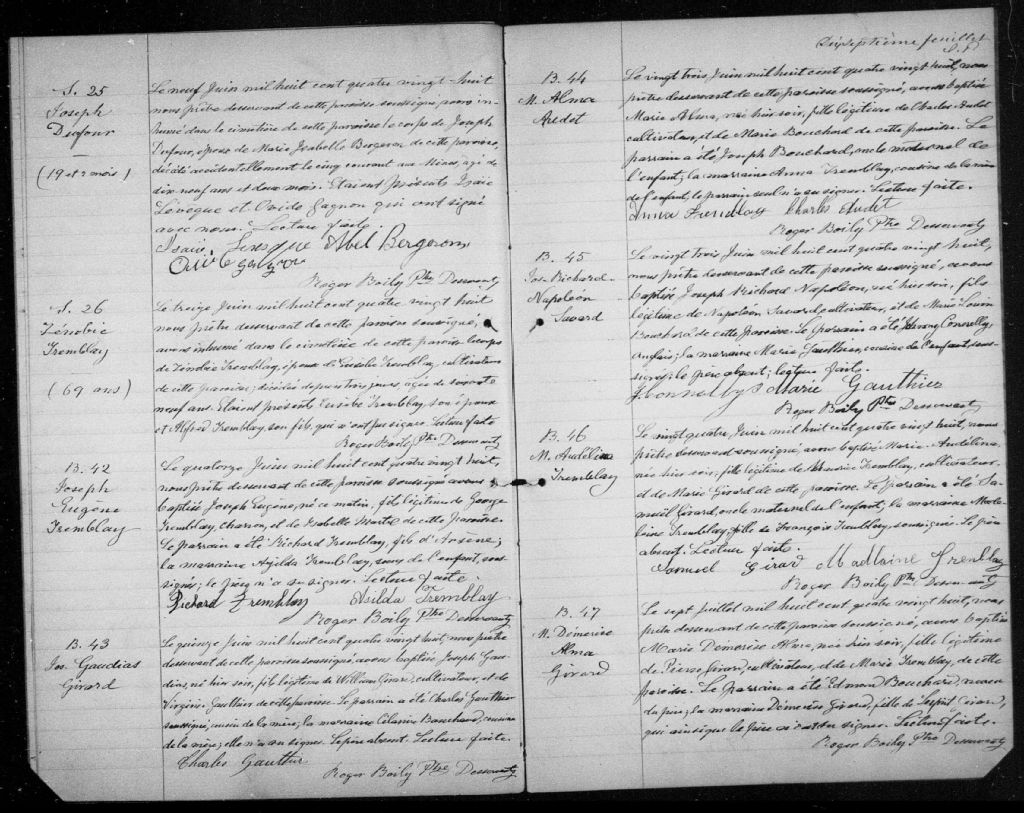 S. 25
Joseph
Dufour
(19 et 2 mois)
Le neuf Juin mil huit cent quatre vingt-huit
nous prêtre desservant de cette paroisse soussigné, avons in-
humé dans le cimetière de cette paroisse le corps de Joseph
Dufour, époux de Marie Isabelle Bergeron de cette paroisse,
décédé accidentellement le cinq courant aux Mines, agé de
dix neuf ans et deux mois. Etaient présents Isaie
Lévèque et Ovide Gagnon qui ont signé
avec nous. Lecture faite.
Isaïe Abel Bergeron
Gagnon
Roger Boily Ptre Desservant
S. 26
Zénobie
Tremblay
(69 ans)
Le treize Juin mil huit cent quatre vingt huit
nous prêtre desservant de cette paroisse soussigné,
avons inhumé dans le cimetière de cette paroisse le corps
de Zénobie Tremblay, épouse de Eusèbe Tremblay, cultivateur
de cette paroisse; décédée depuis trois jours, agée de soixante
neuf ans. Etaient présents Eusèbe Tremblay, son époux
et Alfred Tremblay, son fils, qui n'ont pu signer. Lecture faite
Roger Boily, Ptre Desservant
B. 42
Joseph
Eugène
Tremblay
Le quatorze Juin mil huit cent quatre vingt huit,
nous prêtre desservant de cette paroisse soussigné avons
baptisé Joseph Eugène, né ce matin, fils légitime de George
Tremblay, charron, et de Isabelle Martel de cette paroisse.
Le parrain a été Richard Tremblay, fils d'Arsène;
la marraine Azilda Tremblay, soeur de l'enfant, sous-
signés; le père n'a su signer. Lecture faite.
Richard Tremblay Asilda Tremblay
Roger Boily Ptre Desservant
B. 43
Jos. Gaudias
Girard
Le quinze Juin mil huit cent quatre vingt huit, nous prêtre
desservant de cette paroisse soussigné avons baptisé Joseph Gau-
dias, né hier soir, fils légitime de William Girard, cultivateur, et de
Virginie Gauthier de cette paroisse. Le parrain a été Charles Gauthier
soussigné, cousin de la mère; la marraine Bouchard, cousine
de la mère; elle n'a su signer. Le père absent. Lecture faite.
Charles Gauthier
Roger Boily Ptre Desservant
Dixseptième feuillet
B. 44
M. Alma
Audet
Le vingt trois Juin mil huit cent quatre vingt huit, nous
prêtre desservant de cette paroisse soussigné, avons baptisé
Marie Alma, née hier soir, fille légitime de Charles Audet
cultivateur, et de Marie Bouchard de cette paroisse. Le
parrain a été Joseph Bouchard, oncle maternel de
l'enfant; la marraine Anna Tremblay, cousine de la mère
de l'enfant, le parrain seul n'a su signer. Lecture faite.
Anna Tremblay Charles Audet
Roger Boily Ptre Desservant
B. 45
Jos. Richard
Napoleon
Savard
Le vingt trois Juin mil huit cent quatre vingt huit,
nous prêtre desservant de cette paroisse soussigné, avons
baptisé Joseph Richard Napoleon, né hier soir, fils
légitime de Napoleon Savard, cultivateur, et de Marie
Bouchard de cette paroisse. Le parrain a été Connelly,
Anglais; la marraine Marie Gauthier, cousine de l'enfant, sous-
signés; le père absent; lecture faite.
Marie Gauthier
Roger Boily Ptre Desservant
B. 46
M. Audélina
Tremblay
Le vingt quatre Juin mil huit cent quatre vingt huit, nous
prêtre desservant soussigné, avons baptisé Marie Audélina,
née hier soir, fille légitime de Tremblay, cultivateur,
et de Marie Girard de cette paroisse. Le parrain a été Sa-
muel Girard, oncle maternel de l'enfant; la marraine Made-
leine Tremblay, fille de François Tremblay, soussignés. Le père
absent. Lecture faite.
Samuel Girard Madlaine Tremblay
Roger Boily Ptre Desservant
B. 47
M. Démerise
Alma
Girard
Le sept Juillet mil huit cent quatre vingt huit, nous
prêtre desservant de cette paroisse soussigné, avons baptisé
Marie Demerise Alma, née hier soir, fille légitime
de Pierre Girard, cultivateur, et de Marie Tremblay, de cette
paroisse. Le parrain a été Edmond Bouchard, neveu
du père; la marraine Démerise Girard, fille de Girard,
qui ainsi que le père n'ont su signer. Lecture faite.
Roger Boily Ptre Desservant